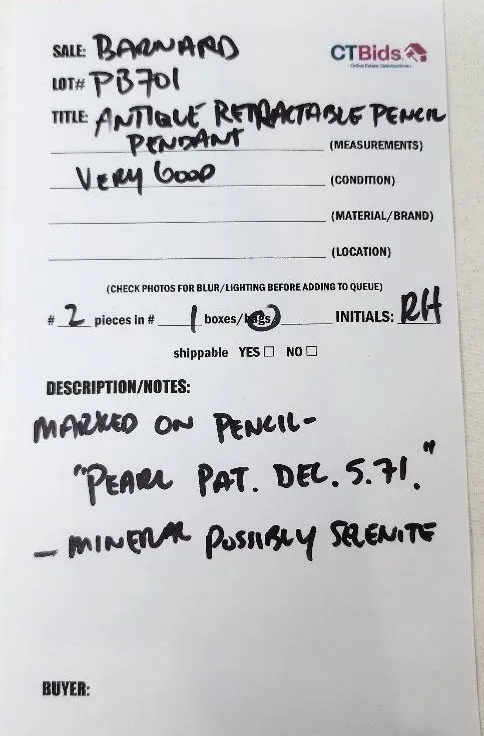 SALE: BARNARD
CTBids
LOT# PB701
TITLE: ANTIQUE RETRACTABLE PENCIL
PENDANT (MEASUREMENTS)
VERY GOOD (CONDITION)
(MATERIAL/BRAND)
(LOCATION)
(CHECK PHOTOS FOR BLUR/LIGHTING BEFORE ADDING TO QUEUE)
# 2 pieces in # 1 boxes/bags INITIALS: RH
shippable YES ☐ NO ☐
DESCRIPTION/NOTES:
MARKED ON PENCIL-
"PEARL PAT. DEC. 5. 71."
- MINERAL POSSIBLY SELENITE
BUYER: